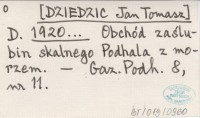 [DZIEDZIC Jan Tomasz]
D. 1920... Obchód zaślu-
bin skalnego Podhala z mo-
rzem. — Gaz. Podh. 8,
nr 11.
br/019/0960